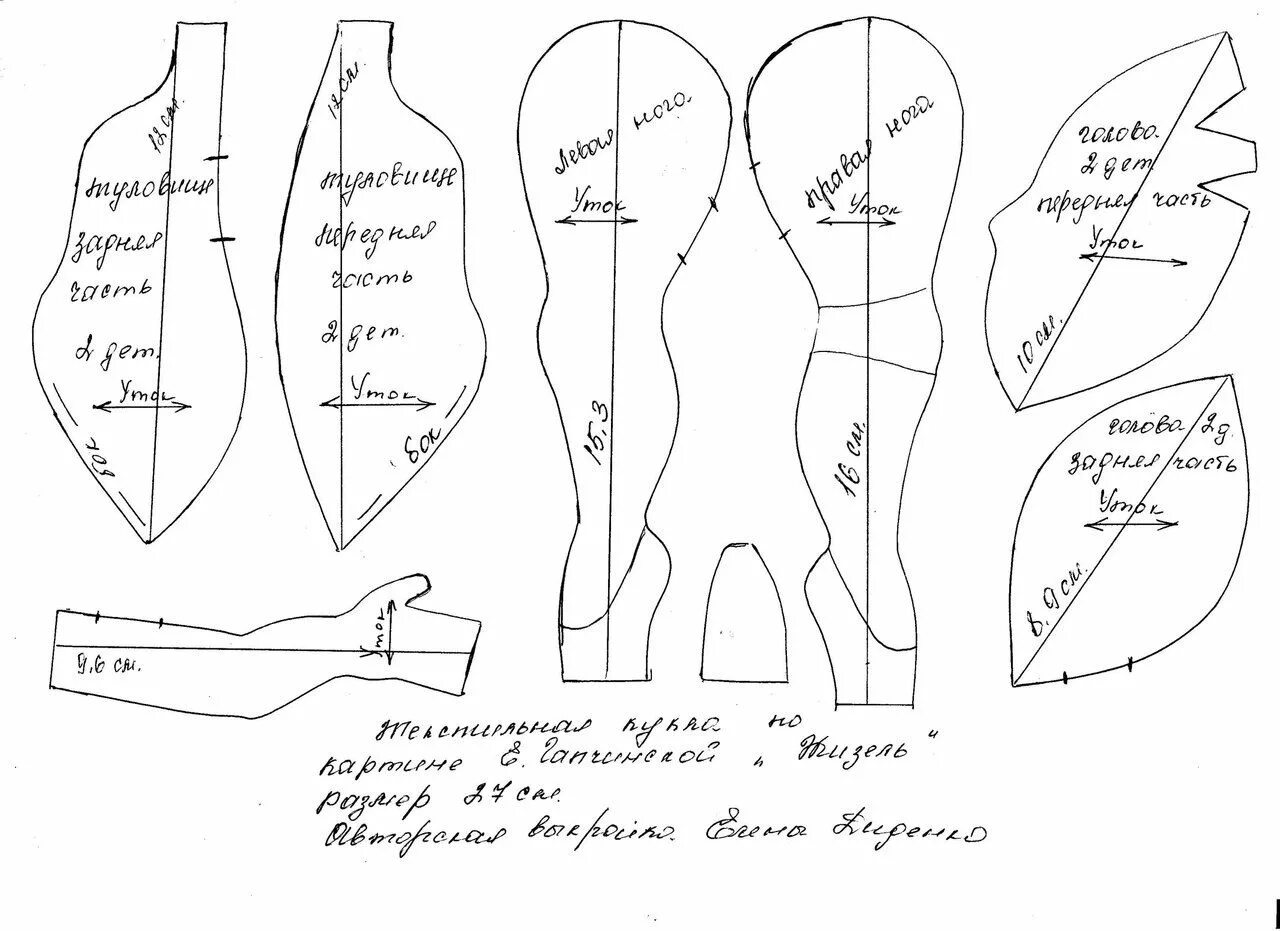 12 см.
туловище
задняя
часть
2 дет.
Уток
бок
12 см.
туловище
передняя
часть
2 дет.
Уток
бок
левая нога.
Уток
15,3
правая нога
Уток
16 см.
голова
2 дет.
передняя часть
Уток
10 см.
голова 2 д.
задняя часть
Уток
8,9 см.
9,6 см.
Уток
Текстильная кукла по
картине Е. Гапчинской „Жизель"
размер 27 см.
Авторская выкройка Елена Диденко